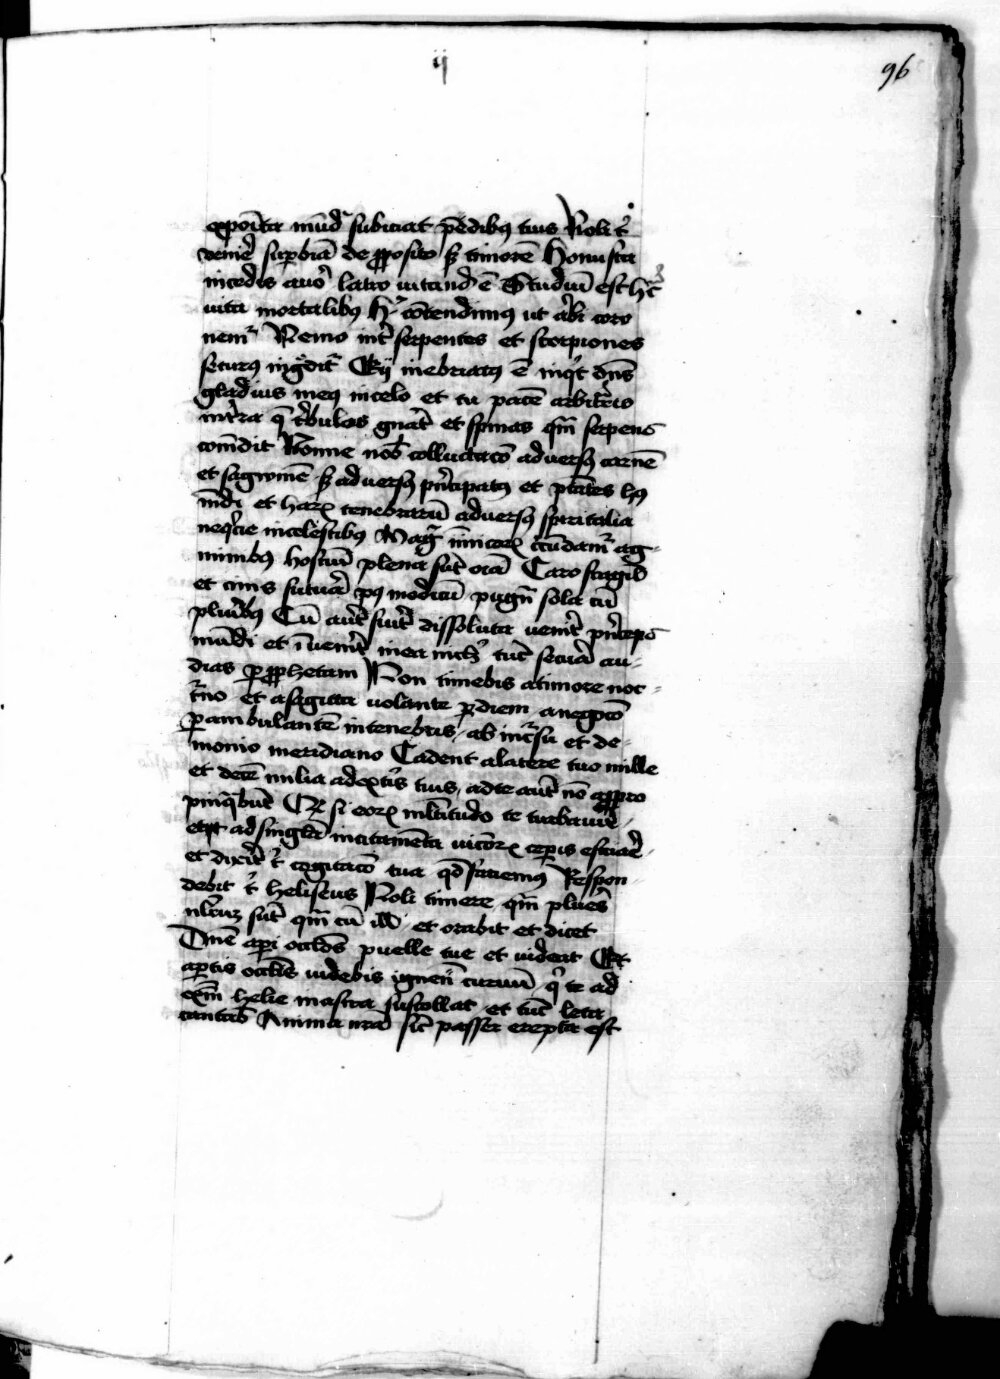 ij
96
mūd subiciat pedibus tuis Noli t
venire superbiā de proposito sz timorē Honusta
incedis auro latro vitand ē Studiū est hec
vita mortalibus hic cōtendimus ut alibi coro
nemur Nemo int serpentes et scorpiones
securus ingredit inebriatus ē inqt dns
gladius meus in celo et tu pacē arbitraris
in terra que tribulos gnat et spinas quā serpens
comedit Nonne nobis colluctatio adversus carnē
et sanguinē sz adversus principatus et ptātes hus
mūdi et harum tenebrarū adversus spiritalia
nequicie in celestibus Magnis inimicorum circūdamur ag-
minibus hostiū plena sūt oīa Caro fragilis
et cinis futura post modicū pugnat sola cū
pluribus Cū aut fuit dissoluta venit princeps
mūdi et invenit in ea nichil tūc secura au-
dias per prophetam Non timebis a timore noc-
turno et a sagitta volante per diem a negotio
perambulante in tenebris ab incursu et de-
monio meridiano Cadent a latere tuo mille
et decē milia a dextris tuis ad te aut nō appro
pinqbunt si eorum multitudo te turbaverit
et ad singula incitamenta viciorum ceperis estuare
et dixerit t cogitatio tua quid faciemus Respon-
debit t heliseus Noli timere quā plures
nobiscum sūt quā cū illis et orabit et dicet
Dne aperi oculos puelle tue et videat Et
apertis oculis videbis igneū currum qui te ad
exm helie in astra sustollat et tūc leta
cantabis Anima nrā sicut passer erepta est